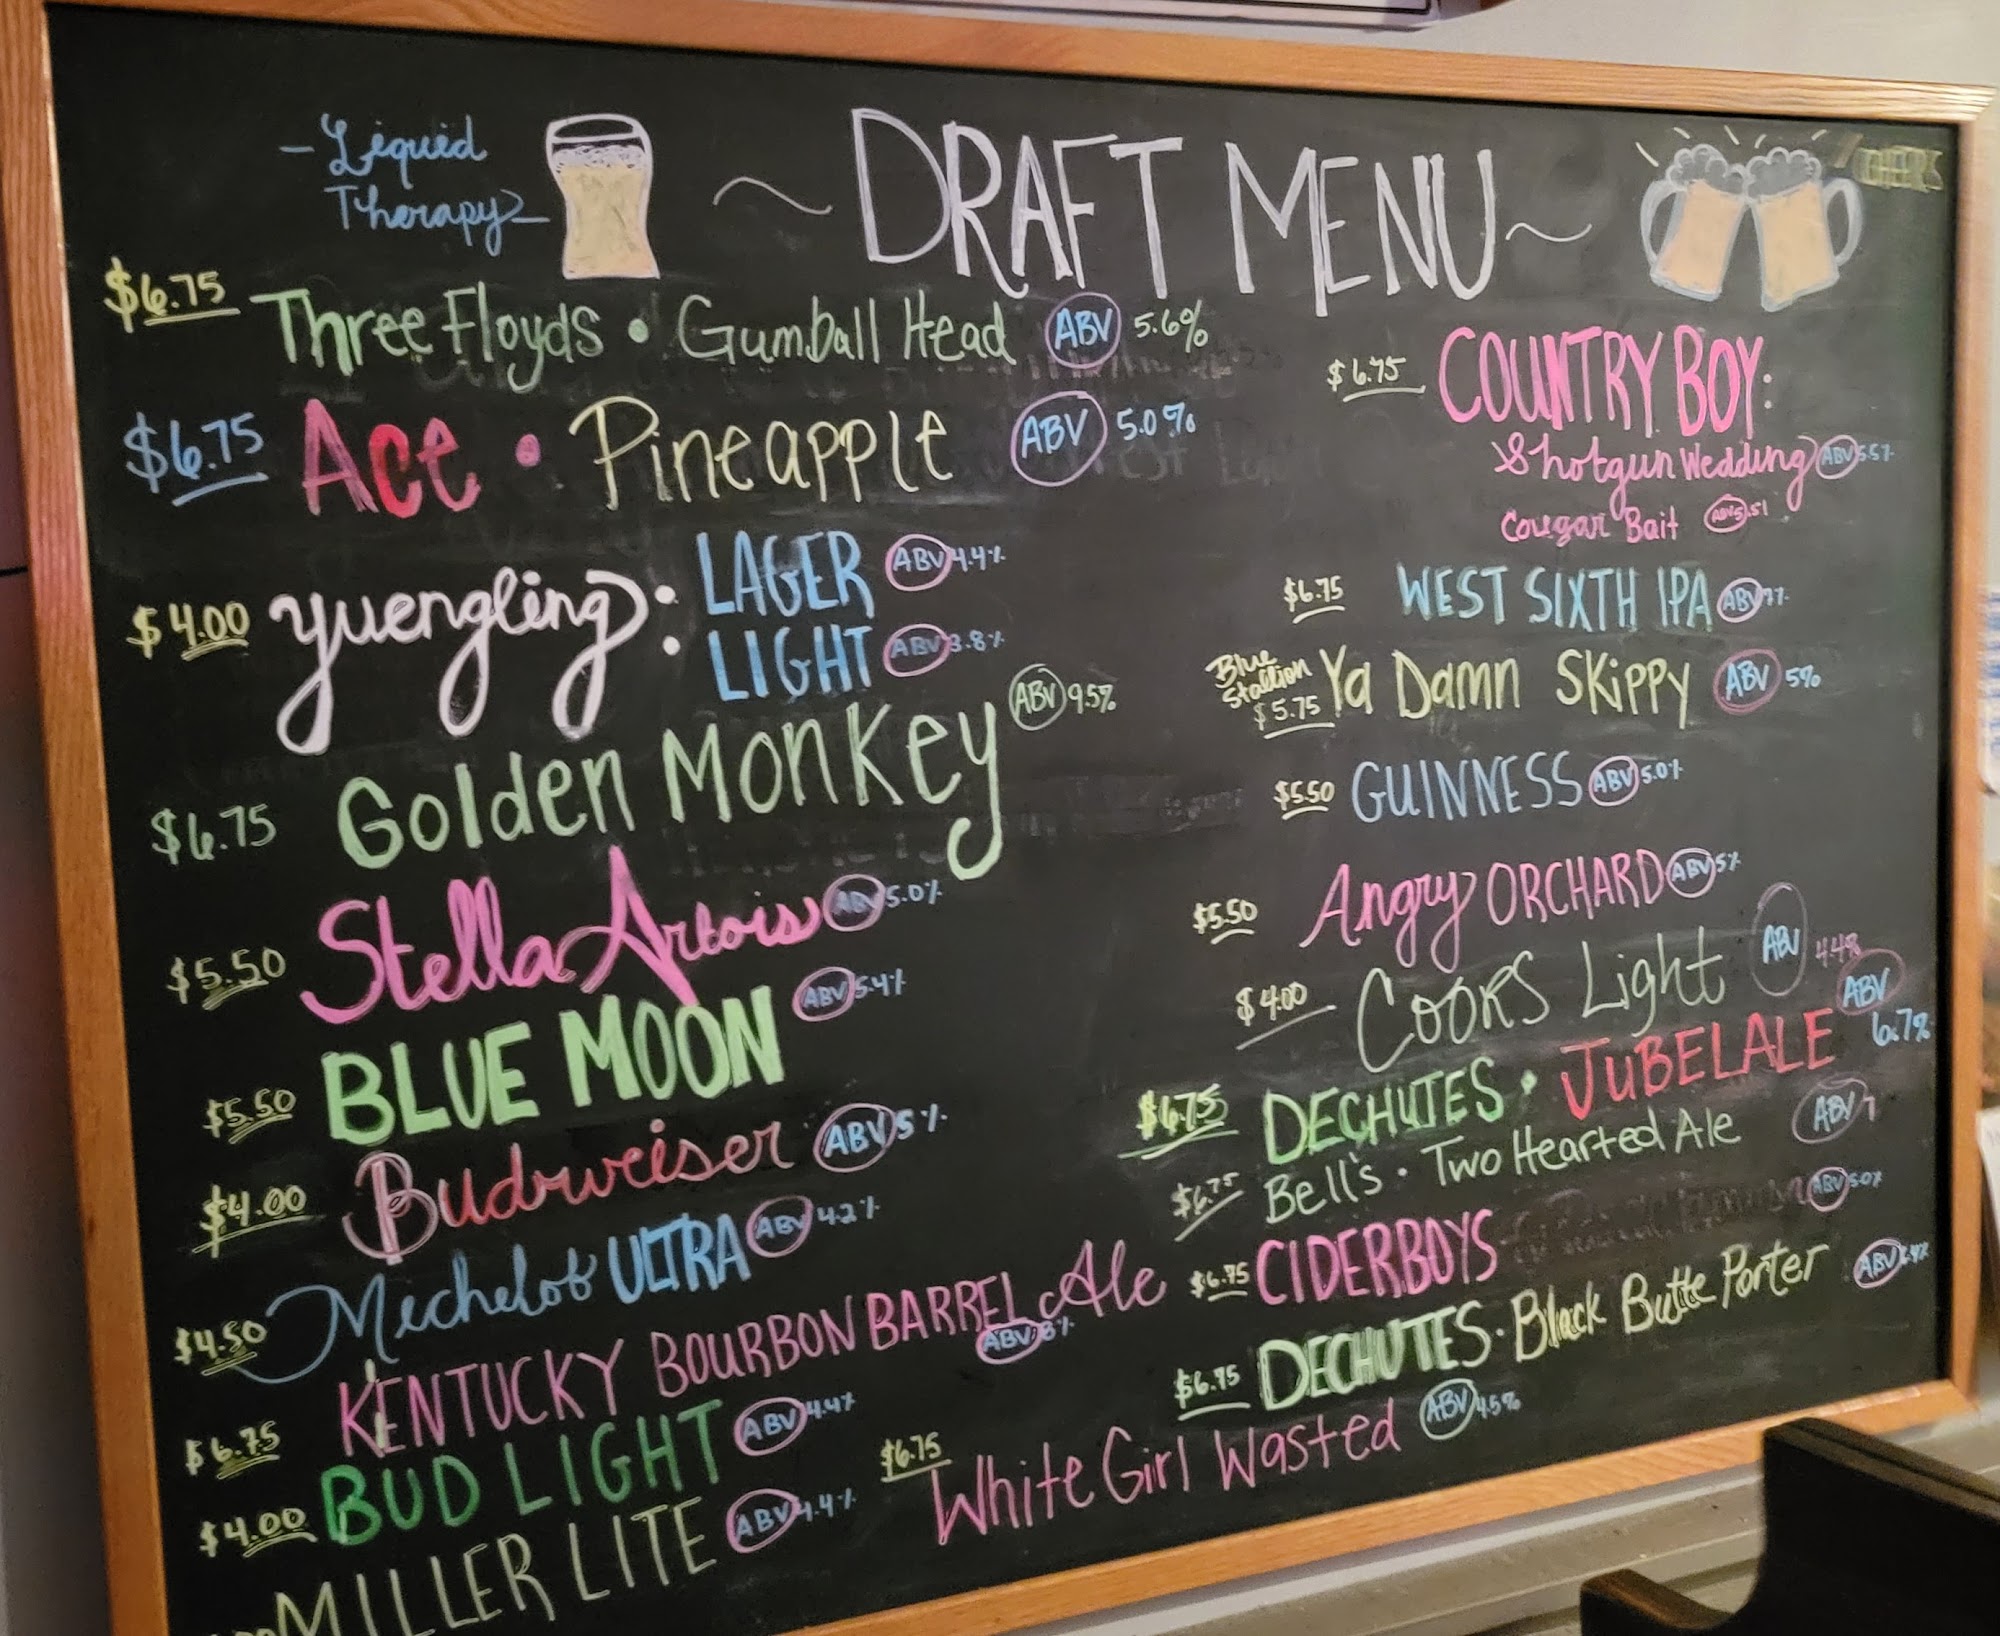 - Liquid
Therapy -
~ DRAFT MENU ~
CHEERS
$6.75 Three Floyds • Gumball Head ABV 5.6%
$6.75 Ace • Pineapple ABV 5.0%
$4.00 Yuengling: LAGER ABV 4.4%
LIGHT ABV 3.8%
$6.75 Golden Monkey ABV 9.5%
$5.50 Stella Artois ABV 5.0%
$5.50 BLUE MOON ABV 5.4%
$4.00 Budrweiser ABV 5%
$4.50 Mechelob ULTRA ABV 4.2%
$6.75 KENTUCKY BOURBON BARREL Ale ABV 8%
$4.00 BUD LIGHT ABV 4.4%
MILLER LITE ABV 4.4%
$6.75 COUNTRY BOY:
Shotgun Wedding ABV 5.5%
Cougar Bait ABV 5.51
$6.75 WEST SIXTH IPA ABV 7%
Blue
Stallion
$5.75 Ya Damn Skippy ABV 5%
$5.50 GUINNESS ABV 5.0%
$5.50 Angry ORCHARD ABV 5%
$4.00 COORS Light ABV 4.4%
$6.75 DECHUTES • JUBELALE ABV 6.7%
$6.75 Bell's • Two Hearted Ale ABV 7
$6.75 CIDERBOYS ABV 5.0%
$6.75 DECHUTES • Black Butte Porter ABV
$6.75 White Girl Wasted ABV 4.5%